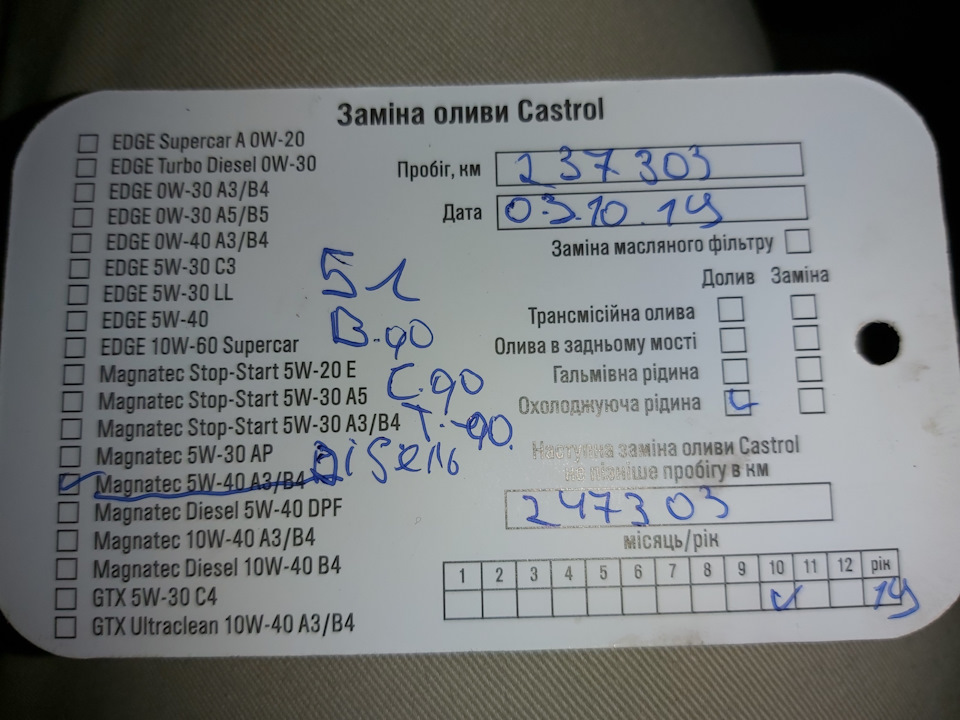 Заміна оливи Castrol
EDGE Supercar A 0W-20
EDGE Turbo Diesel 0W-30
EDGE 0W-30 A3/B4
EDGE 0W-30 A5/B5
EDGE 0W-40 A3/B4
EDGE 5W-30 C3
EDGE 5W-30 LL
EDGE 5W-40
EDGE 10W-60 Supercar
Magnatec Stop-Start 5W-20 E
Magnatec Stop-Start 5W-30 A5
Magnatec Stop-Start 5W-30 A3/B4
Magnatec 5W-30 AP
Magnatec 5W-40 A3/B4
Magnatec Diesel 5W-40 DPF
Magnatec 10W-40 A3/B4
Magnatec Diesel 10W-40 B4
GTX 5W-30 C4
GTX Ultraclean 10W-40 A3/B4
5 л
В-90
С-90
Т-90.
Дізель
Пробіг, км 237303
Дата 03.10.19
Заміна масляного фільтру
Долив Заміна
Трансмісійна олива
Олива в задньому мості
Гальмівна рідина
Охолоджуюча рідина
Наступна заміна оливи Castrol
не пізніше пробігу в км
247303
місяць/рік
1 2 3 4 5 6 7 8 9 10 11 12 рік
19